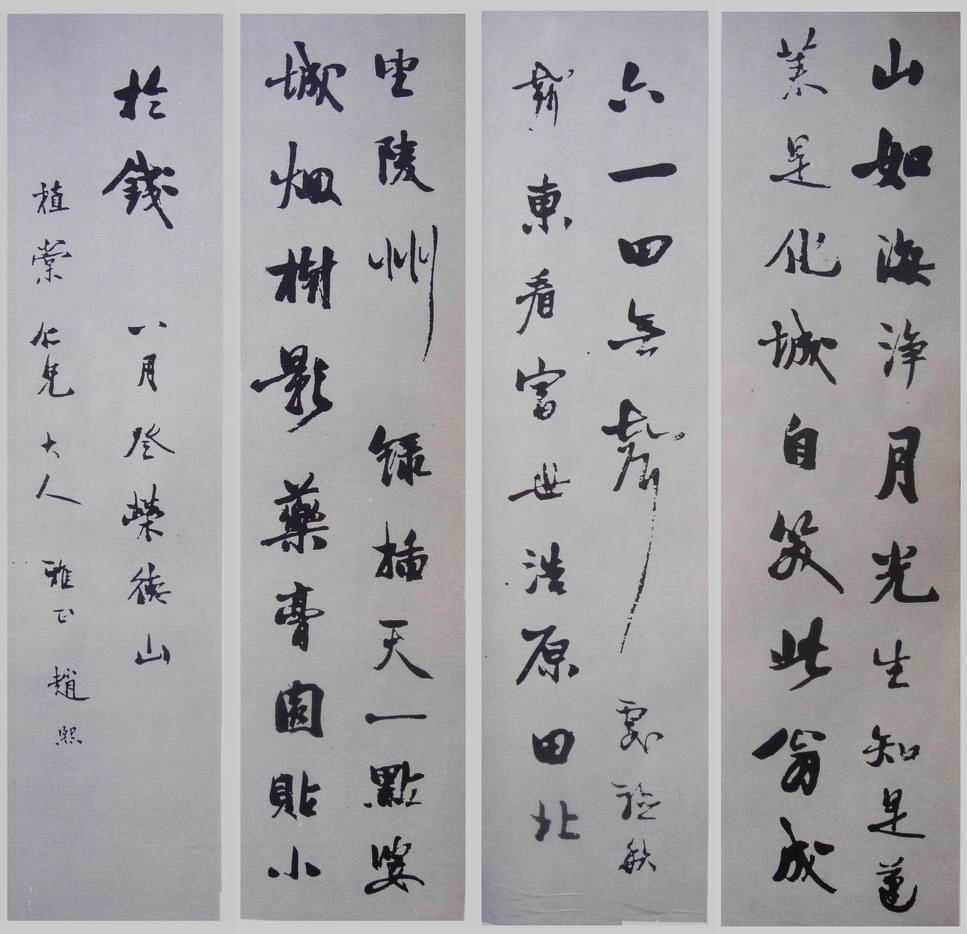 山如海淨月光生知是蓮
是化城自笑此翁成
六一四無聲處證秋
聲東看富世浩原田北
望陵州綠插天一點婆
城烟樹影藥膏圓貼小
於錢 八月登榮德山
植棠仁兄大人雅正趙熙